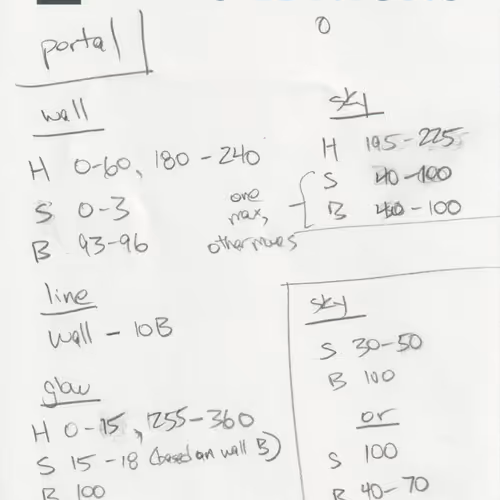 portal
0
wall
H 0-60, 180-240
S 0-3
B 93-96
line
wall - 10B
glow
H 0-15, 255-360
S 15-18 (based on wall B)
B 100
sky
H 195-225
S 40-100
B 40-100
one
max,
other moves
sky
S 30-50
B 100
or
S 100
B 40-70